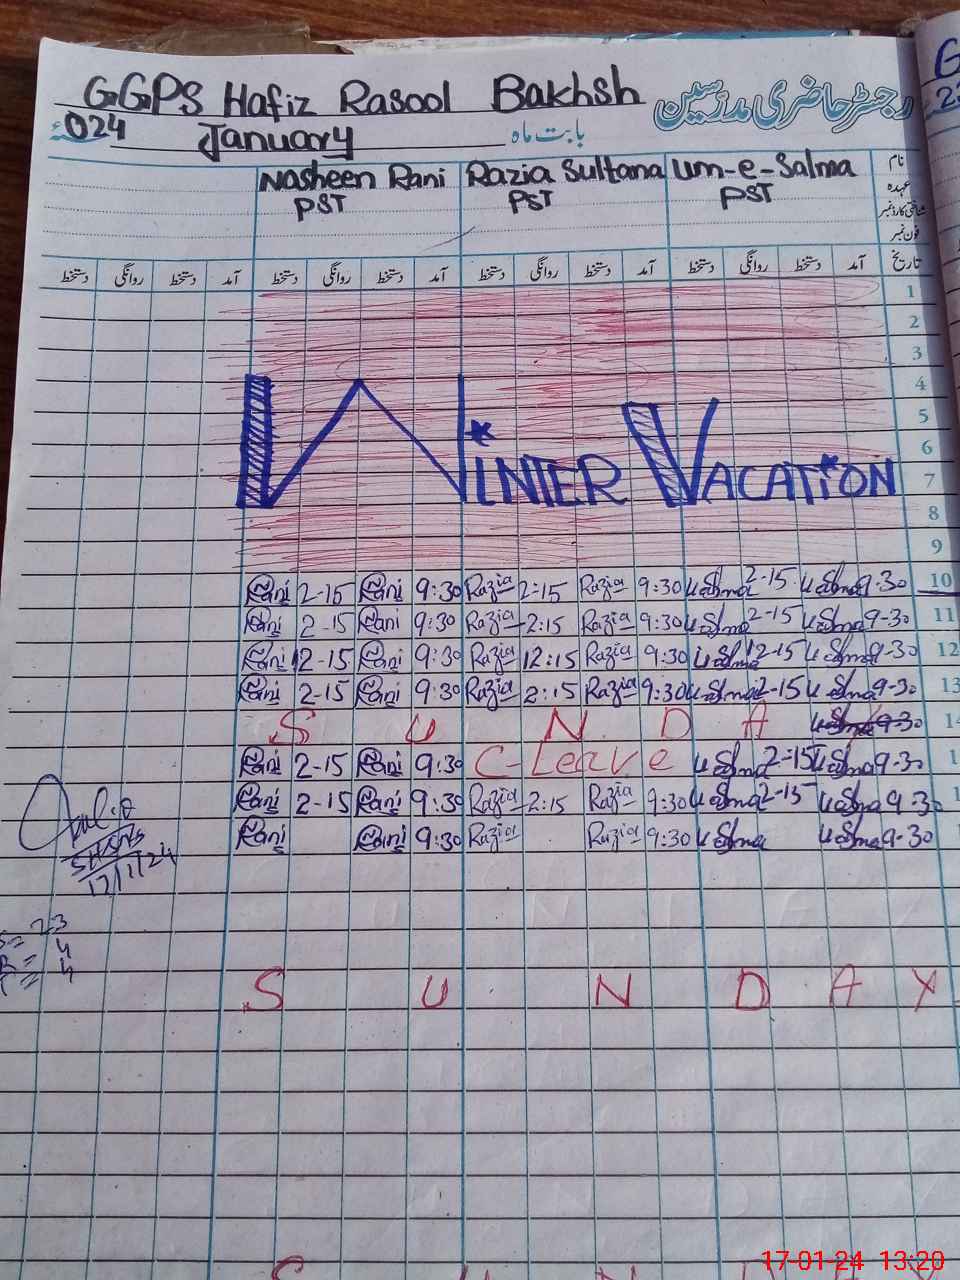 GGPS Hafiz Rasool Bakhsh
رجسٹر حاضری مدرسین
024ء January بابت ماہ
Nasheen Rani Razia Sultana Um-e-Salma نام
PST PST PST عہدہ
شناختی کارڈ نمبر
فون نمبر
دستخط روانگی دستخط آمد دستخط روانگی دستخط آمد دستخط روانگی دستخط آمد دستخط روانگی دستخط آمد تاریخ
1
2
3
4
5
6
WINTER VACATION 7
8
9
Rani 2-15 Rani 9:30 Razia 2:15 Razia 9:30 uSalma 2-15 uSalma 9-30 10
Rani 2-15 Rani 9:30 Razia 2:15 Razia 9:30 uSalma 2-15 uSalma 9-30 11
Rani 12-15 Rani 9:30 Razia 12:15 Razia 9:30 uSalma 12-15 uSalma 9-30 12
Rani 2-15 Rani 9:30 Razia 2:15 Razia 9:30 uSalma 2-15 uSalma 9-30 13
S U N D A 14
Rani 2-15 Rani 9:30 C-Leave uSalma 2-15 uSalma 9-30 1
Rani 2-15 Rani 9:30 Razia 2:15 Razia 9:30 uSalma 2-15 uSalma 9-30 1
Rani Rani 9:30 Razia Razia 9:30 uSalma uSalma 9-30 1
17/1/24
= 23
= 4
= 4
S U N D A Y
17-01-24 13:20